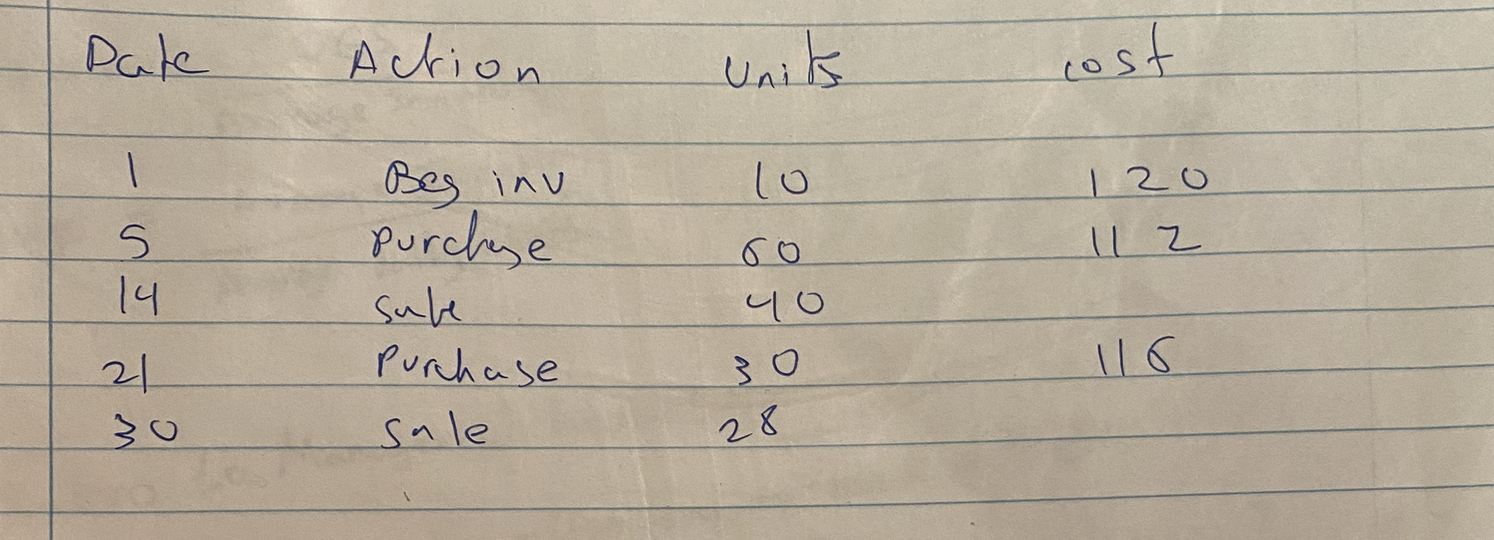 Date Action Units cost
1 Beg inv 10 120
5 purchase 60 112
14 sale 40
21 Purchase 30 116
30 sale 28